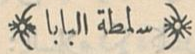 سلطة البابا